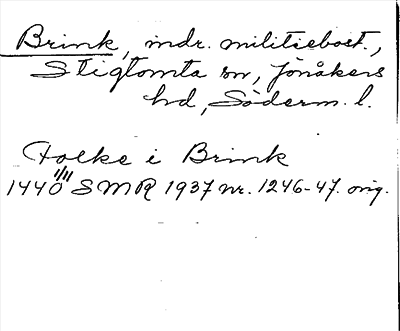 Brink, indr. militiebost.,
Stigtomta sn, Jönåkers
hd, Söderm. l.
Folke i Brink
1440 1/11 SMR 1937 nr. 1246-47. orig.